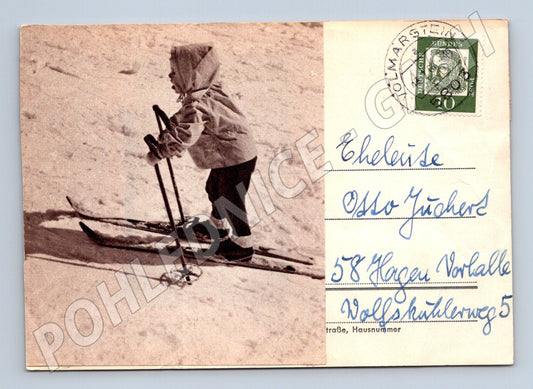 VOLMARSTEIN
DEUTSCHE
BUNDESPOST
10
Eheleute
Otto Juchert
58 Hagen Vorhalle
Wolfskuhlerweg 5
traße, Hausnummer
POHLEDNICE - G
H